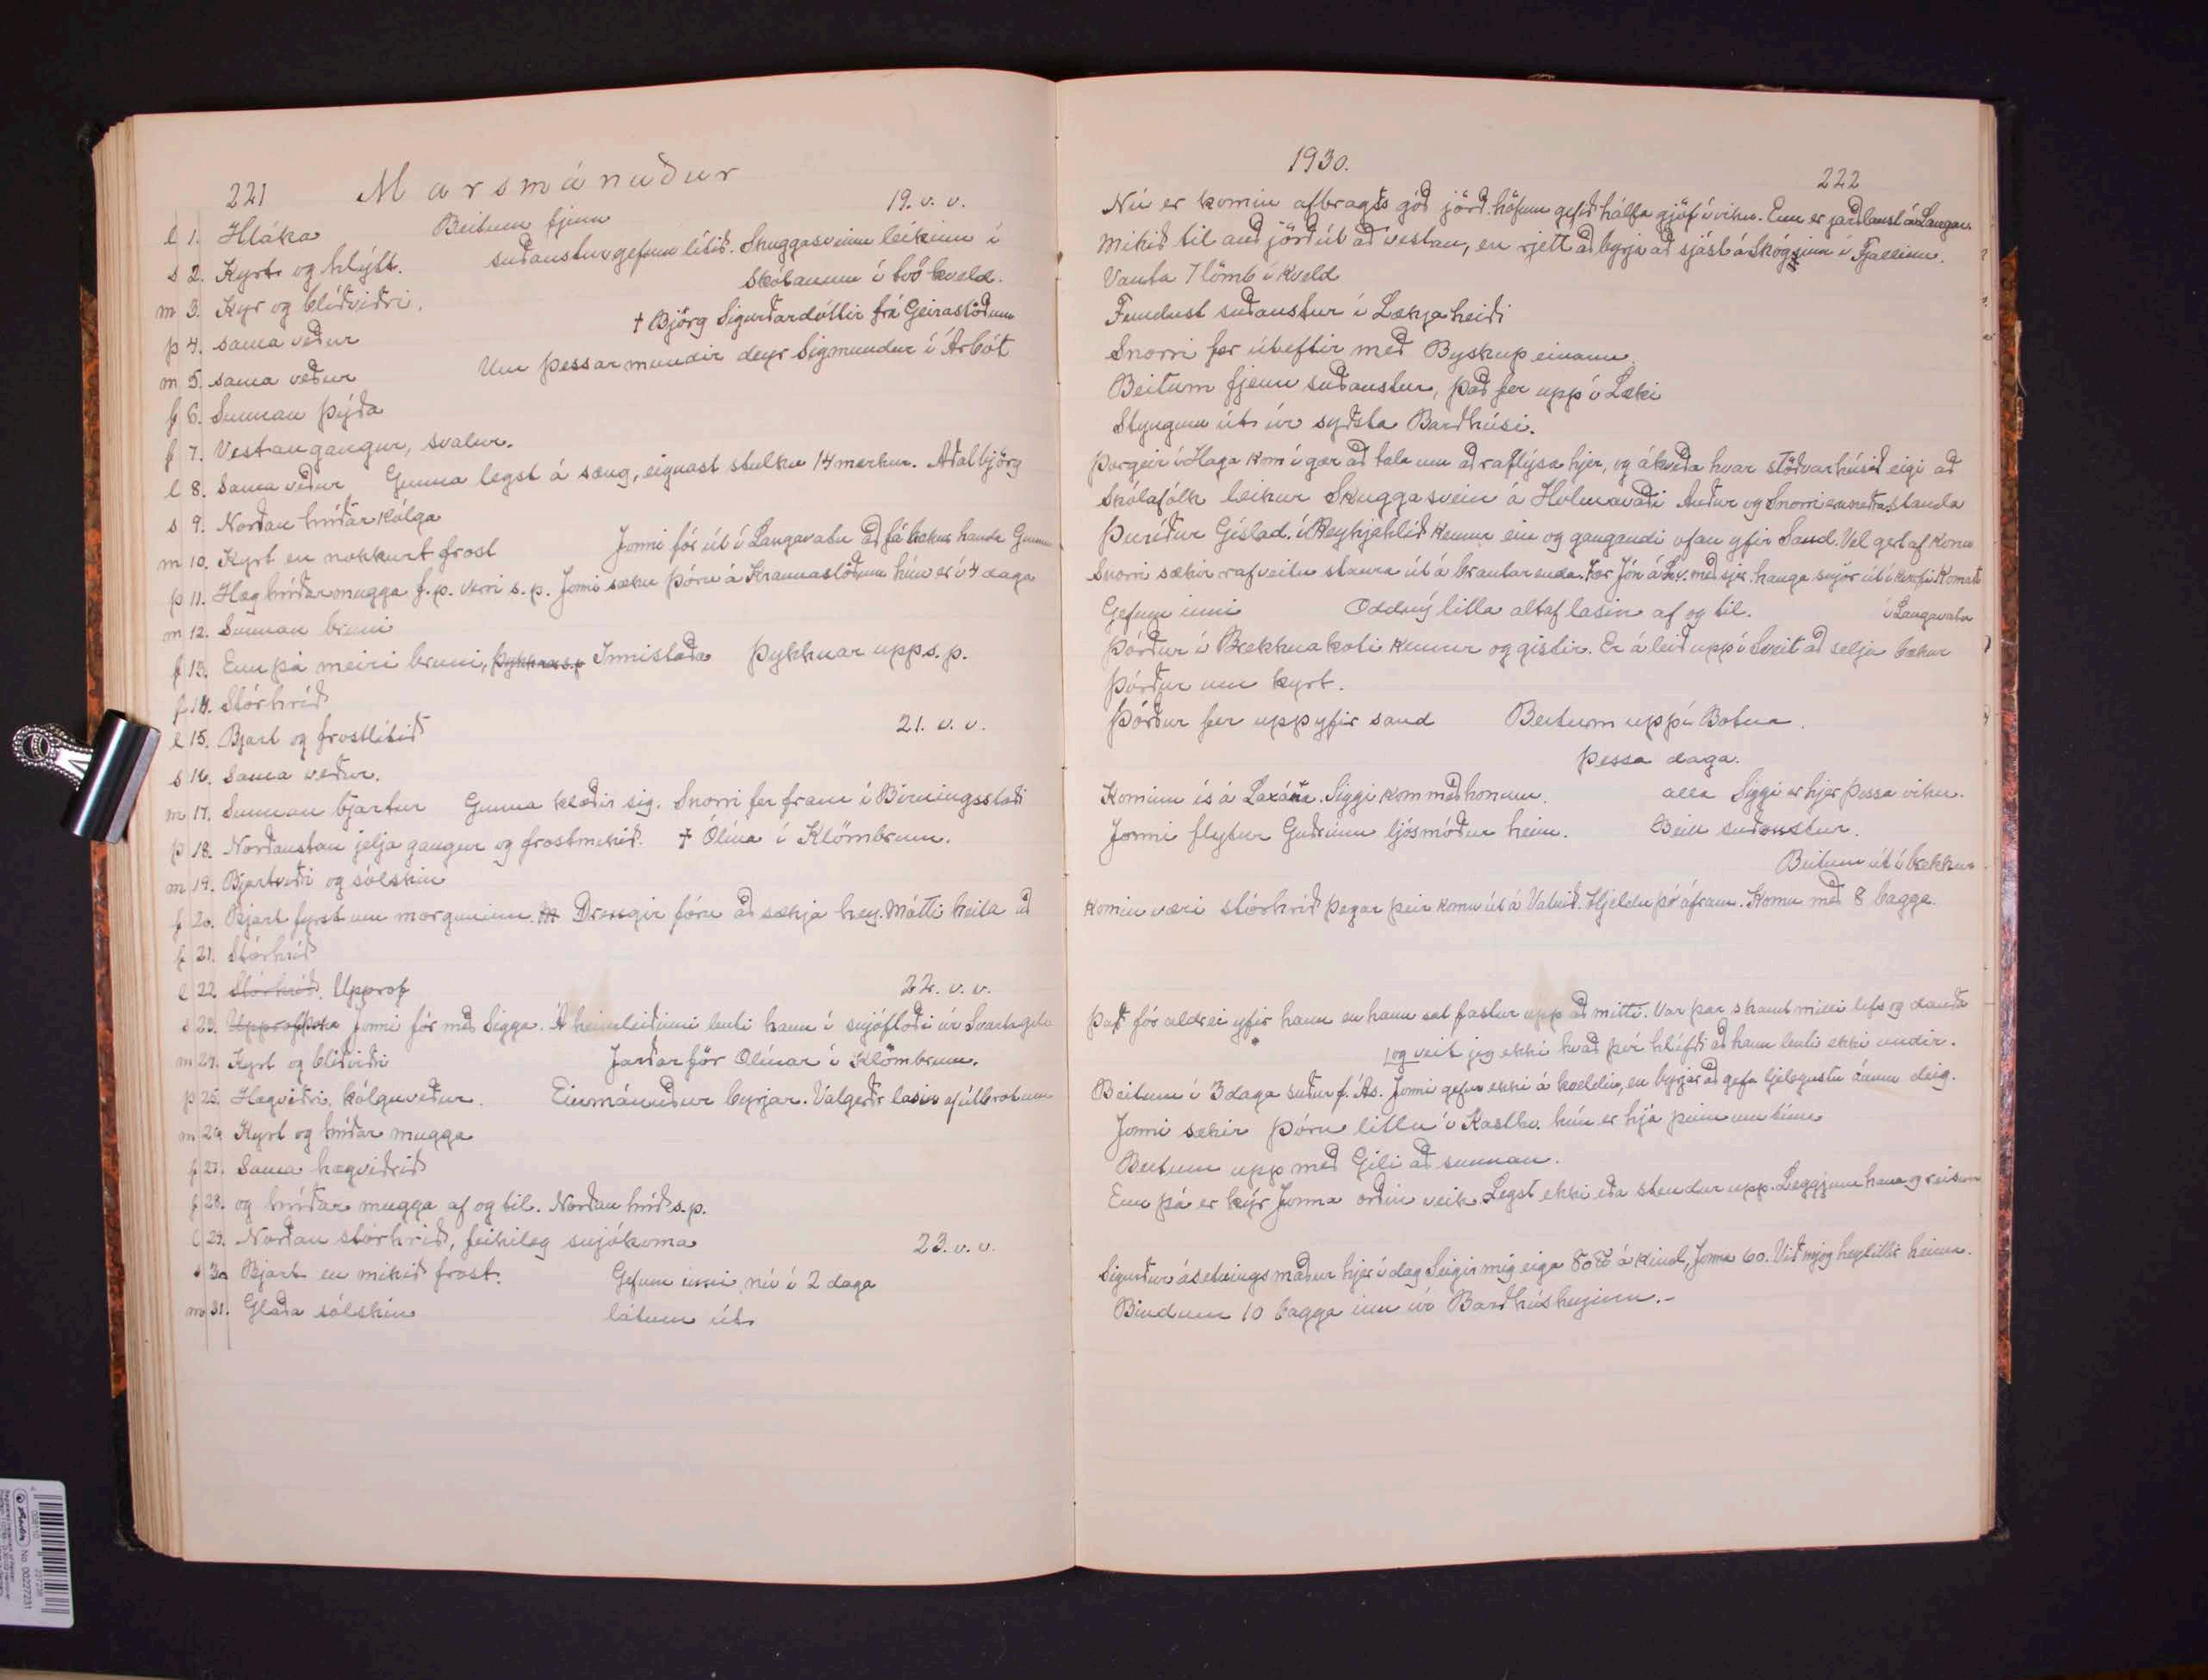 221 Marsmánuður
l 1. Hláka Beitum fjenu 19. v. v.
s 2. Kyrt og hlýtt. suðaustur gefum lítið. Skuggasveinn leikinn í
skólanum í tvö kveld.
m 3. Kyr og blíðviðri.
† Björg Sigurðardóttir frá Geirastöðum
þ 4. sama veður
m 5. sama veður Um þessar mundir deyr Sigmundur í Árbót
f 6. Sunnan þýða
f 7. Vestangangur, svalur.
l 8. Sama veður Gunna legst á sæng, eignast stulku 14 merkur. Aðalbjörg
s 9. Norðan hríðar kólga
m 10. Kyrt en nokkurt frost Jonni fór út í Langavatn að fá handa Gunnu
þ 11. Hæg hríðarmugga f.p. verri s.p. Jonni sækir Þóru á Krannastöðum hún er í 4 daga
m 12. Sunnan bruni
f 13. Enn þá meiri bruni, Þykknar s.p Innistaða Þykknar upp s.p.
f 14. Stórhríð
l 15. Bjart og frostlítið 21. v. v.
s 16. Sama veður.
m 17. Sunnan bjartur Gunna klæðir sig. Snorri fer fram í Birningsstaði
þ 18. Norðaustan jelja gangur og frostmikið. † Ólína í Klömbrum.
m 19. Bjartviðri og sólskin
f 20. Bjart fyrst um morguninn. Drengir fóru að sækja hey. Mátti heita að
f 21. Stórhríð
l 22 Stórhríð. Upprof 22. v. v.
s 23. Jonni fór með Sigga. Á heimleiðinni lenti hann í snjóflóði úr Svartagili
m 24. Kyrt og blíðviðri Jarðarför Ólínar í Klömbrum.
þ 25. Hægviðri, kólguveður. Einmánuður byrjar. Valgerðr lasin af útbrotum
m 26 Kyrt og hríðar mugga
f 27. Sama hægviðrið
f 28. og hríðar mugga af og til. Norðan hríð s.p.
l 29. Norðan stórhríð, feikileg snjókoma 23. v. v.
s 30 Bjart en mikið frost. Gefum inni nú í 2 daga
m 31. Glaða sólskin látum út
1930. 222
Nú er komin afbragðs góð jörð. höfum gefið hálfa gjöf í viku. Enn er jarðlaust á Langav.
Mikið til auð jörð út að vestan, en rjett að byrja að sjást á Skóginn í Fjallinu.
Vanta 7 lömb í kveld
Fundust suðaustur í Lækjaheiði
Snorri fer úteftir með Byskup einann
Beitum fjenu suðaustur, það fer upp í Læki
Styngum út úr syðsta Barðhúsi.
Þorgeir í Haga kom í gær að tala um að raflýsa hjer, og ákveða hvar stöðvarhúsið eigi að
Skólafólk leikur Skuggasvein á Holmavaði Auður og Snorri standa
Þuríður Gíslad. í Reykjahlíð kemur ein og gangandi ofan yfir Sand. Vel gert af konu
Snorri sækir rafveitu staura út á brautarenda. Fær Jón á með sjer. hanga snjór út í Komast
Gefum inni Oddný litla altaf lasin af og til. í Langavatn
Þórður í Brekknakoti kemur og gistir. Er á leið upp í Sveit að selja bækur
Þórður um kyrt.
Þórður fer upp yfir sand Beitum upp í Botna.
þessa daga.
Kominn ís á Laxána. Siggi kom með honum. alla Siggi er hjer þessa viku.
Jonni flytur Guðrúnu ljósmóður heim. Beit suðaustur.
Beitum út í brekkur
komin væri stórhríð þegar þeir komu út á Vatnið. Hjeldu þó áfram. Komu með 8 bagga.
Það fór aldrei yfir hann en hann sat fastur upp að mitti. Var þar skamt milli lífs og dauða
og veit jeg ekki hvað því hlífði að hann lenti ekki undir.
Beitum í 3 daga suður f. Ás. Jonni gefur ekki á kveldin, en byrjar að gefa ljelegustu ánum deig.
Jonni sækir Þóru litlu í Kasthv. hún er hjá þeim um tíma
Beitum upp með Gili að sunnan.
Enn þá er kýr Jonna orðin veik Legst ekki eða stendur upp. Leggjum hana og reisum
Sigurður ásetningsmaður hjer í dag Seigir mig eiga 80 ℔ á kind, Jonna 60. Við mjög heylitlir heima.
Bindum 10 bagga inn úr Barðhúsheyinu.-